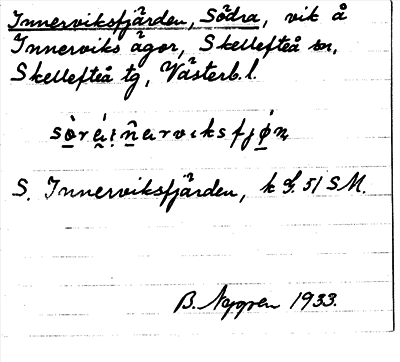 Innerviksfjärden, Södra, vik å
Innerviks ägor, Skellefteå sn,
Skellefteå tg, Västerb. l.
S. Innerviksfjärden, k G. 51 SM.
B. Nygren 1933.